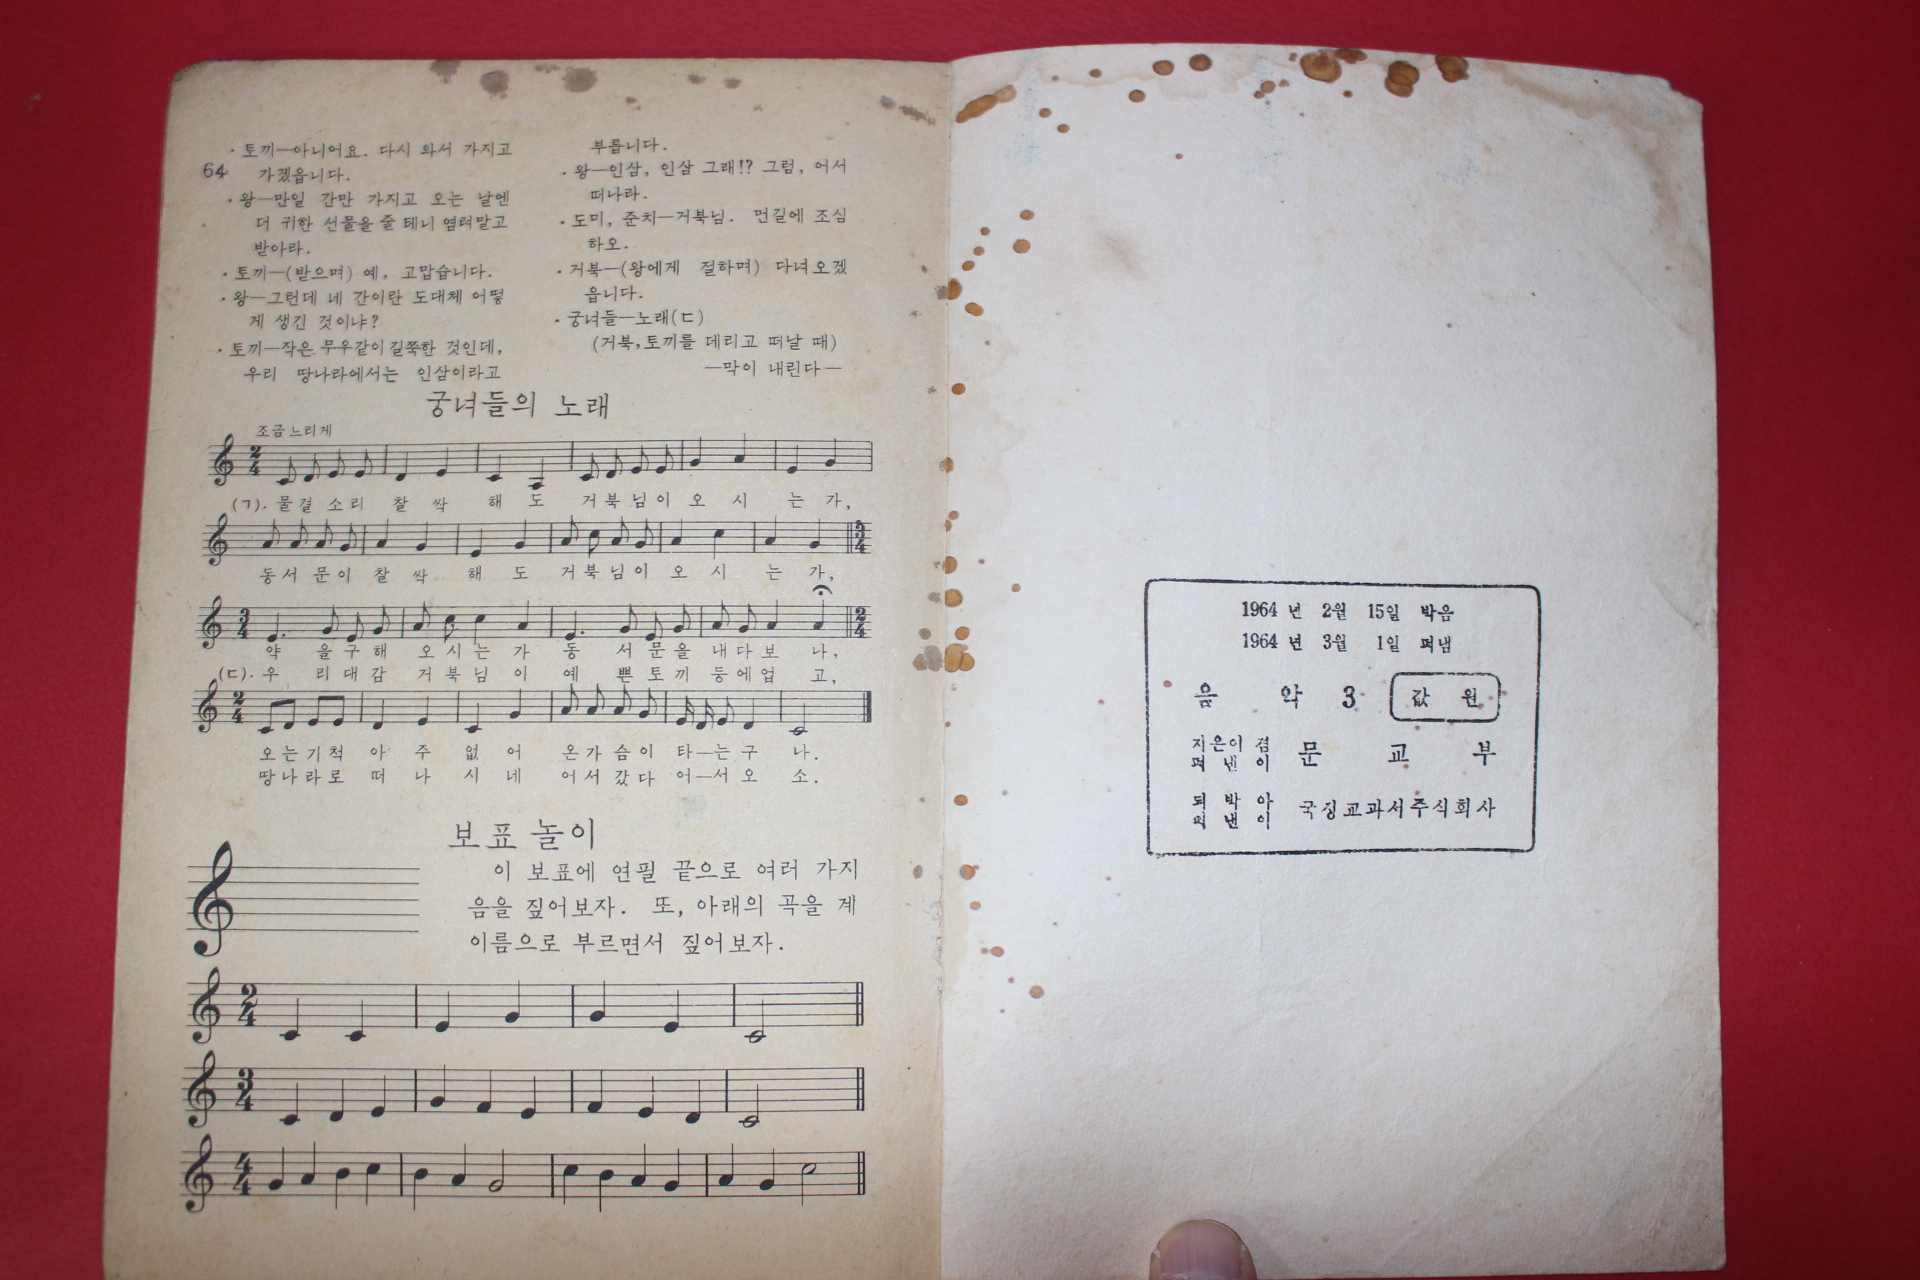 64
· 토끼―아니어요. 다시 와서 가지고
가겠읍니다.
· 왕―만일 간만 가지고 오는 날엔
더 귀한 선물을 줄 테니 염려말고
받아라.
· 토끼―(받으며) 예, 고맙습니다.
· 왕―그런데 네 간이란 도대체 어떻
게 생긴 것이냐?
· 토끼―작은 무우같이 길쭉한 것인데,
우리 땅나라에서는 인삼이라고
부릅니다.
· 왕―인삼, 인삼 그래!? 그럼, 어서
떠나라.
· 도미, 준치―거북님. 먼길에 조심
하오.
· 거북―(왕에게 절하며) 다녀오겠
읍니다.
· 궁녀들―노래(ㄷ)
(거북,토끼를 데리고 떠날 때)
―막이 내린다―
궁녀들의 노래
조금 느리게
2/4
(ㄱ). 물결 소리 찰 싹 해 도 거북님이 오 시 는 가,
3/4
동서 문이 찰 싹 해 도 거북님이 오 시 는 가,
3/4 2/4
약 을구해 오시는 가 동 서문을 내다보 나,
(ㄷ). 우 리대감 거북님 이 예 쁜토끼 등에업 고,
2/4
오는기척 아 주 없 어 온가슴이 타―는구 나.
땅나라로 떠 나 시 네 어서갔다 어―서오 소.
보표 놀이
이 보표에 연필 끝으로 여러 가지
음을 짚어보자. 또, 아래의 곡을 계
이름으로 부르면서 짚어보자.
2/4
3/4
4/4
1964 년 2월 15일 박음
1964 년 3월 1일 펴냄
음 악 3 값 원
지은이 겸
펴 낸 이 문 교 부
되 박 아
펴 낸 이 국정교과서주식회사